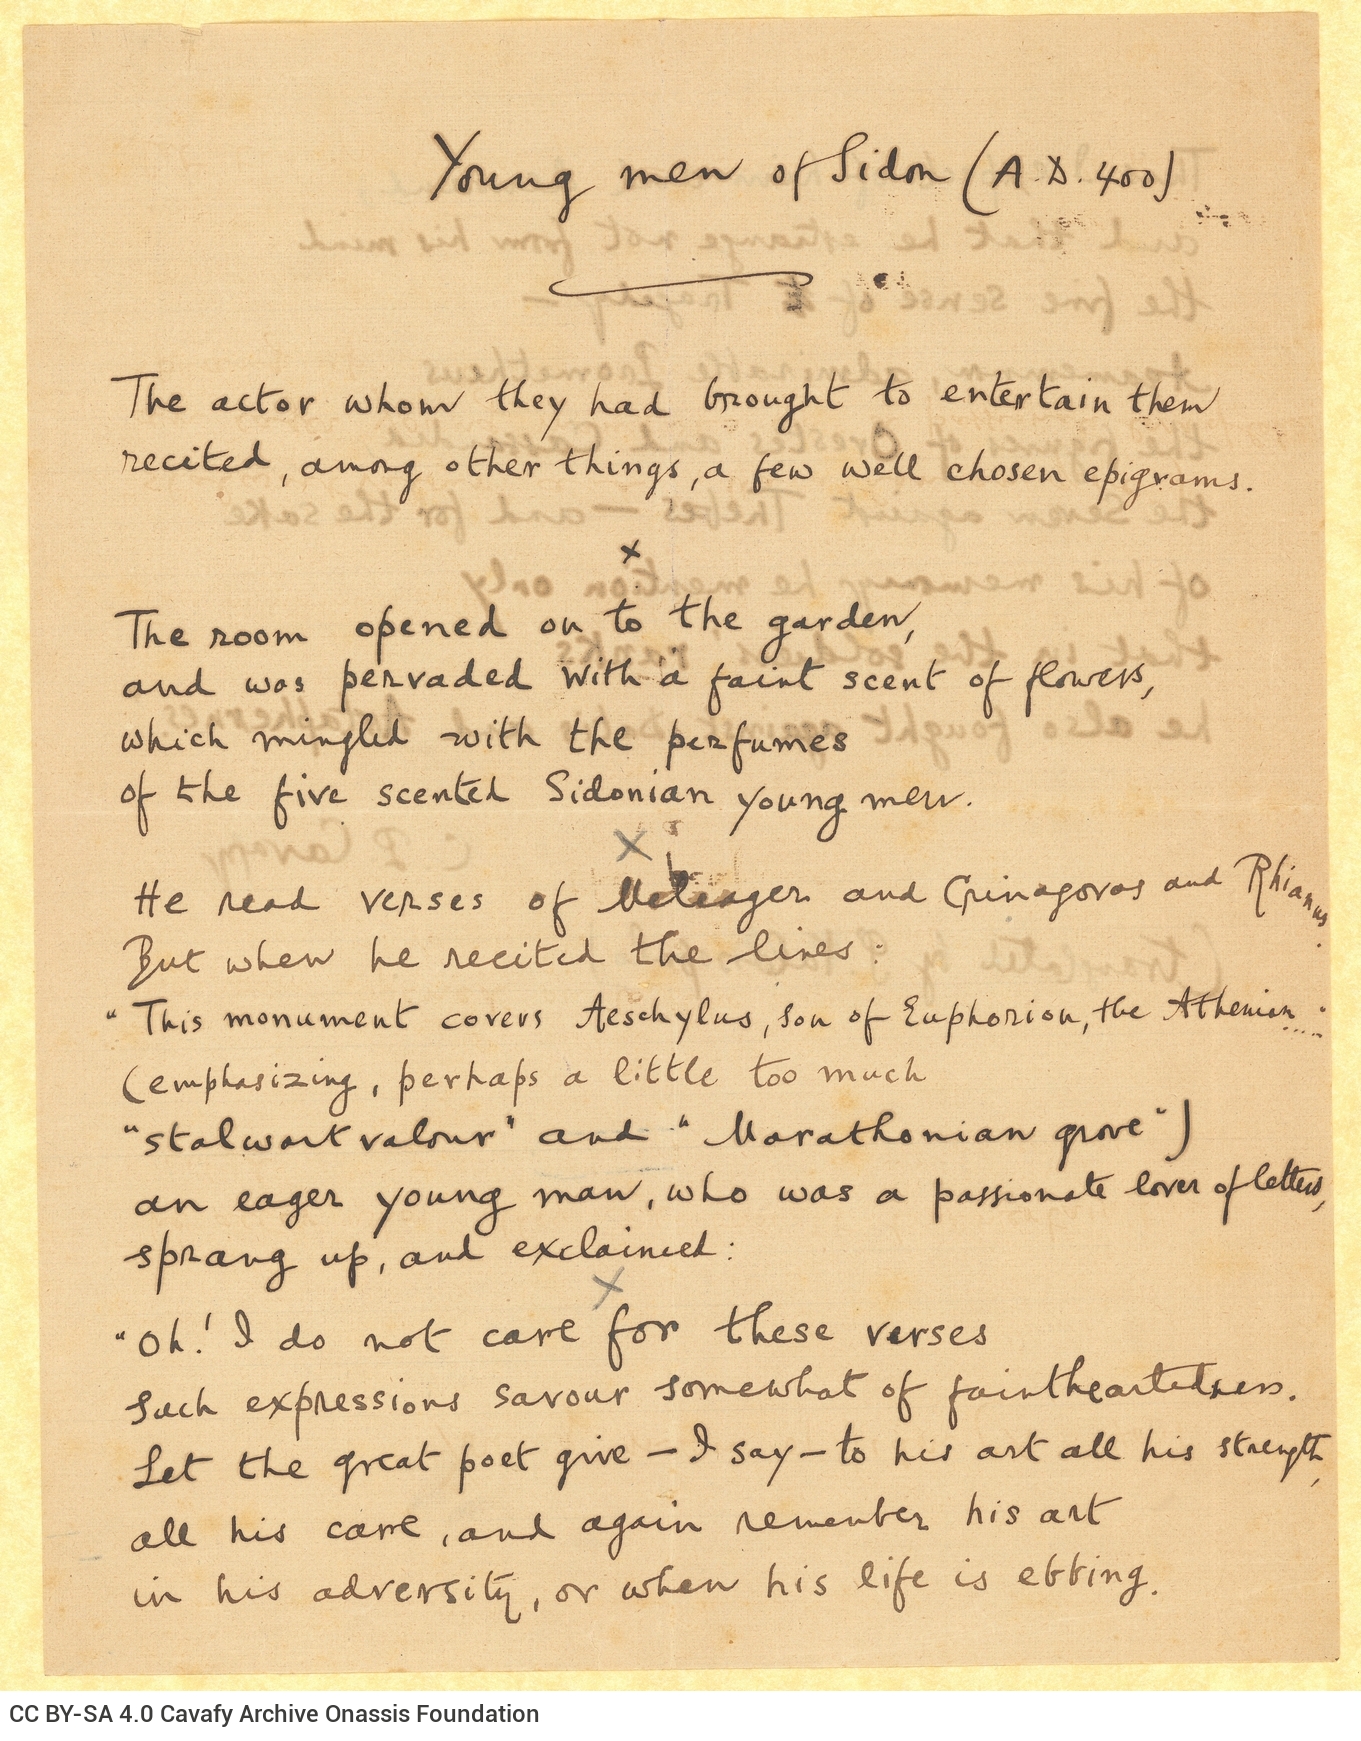 Young men of Sidon (A.D. 400)
The actor whom they had brought to entertain them
recited, among other things, a few well chosen epigrams.
x
The room opened on to the garden,
and was pervaded with a faint scent of flowers,
which mingled with the perfumes
of the five scented Sidonian young men.
x
He read verses of Meleager and Crinagoras and Rhianus.
But when he recited the lines:
"This monument covers Aeschylus, son of Euphorion, the Athenian....:
(emphasizing, perhaps a little too much
"stalwart valour" and "Marathonian grove")
an eager young man, who was a passionate lover of letters,
sprang up, and exclaimed:
x
"Oh! I do not care for these verses
Such expressions savour somewhat of faintheartedness.
Let the great poet give — I say — to his art all his strength,
all his care, and again remember his art
in his adversity, or when his life is ebbing.
CC BY-SA 4.0 Cavafy Archive Onassis Foundation